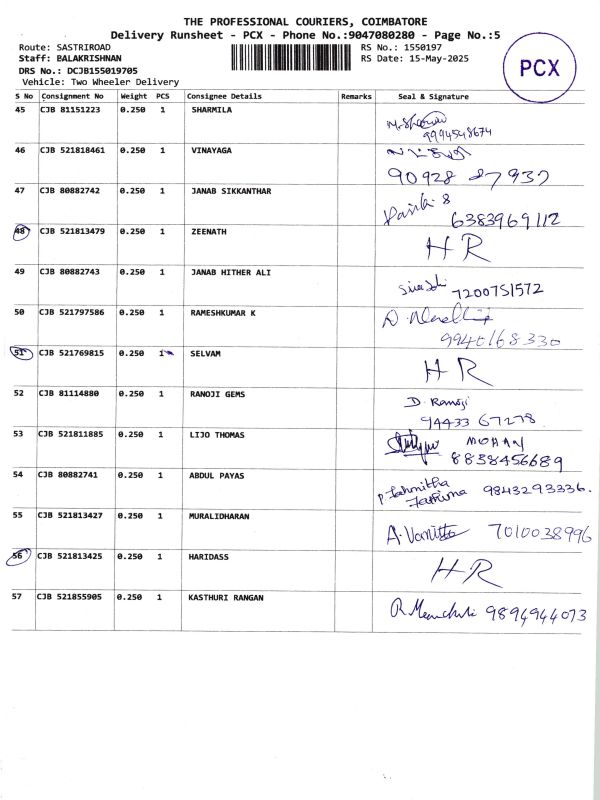 THE PROFESSIONAL COURIERS, COIMBATORE
Delivery Runsheet - PCX - Phone No.:9047080280 - Page No.:5
Route: SASTRIROAD
RS No.: 1550197
Staff: BALAKRISHNAN
RS Date: 15-May-2025
DRS No.: DCJB155019705
Vehicle: Two Wheeler Delivery
PCX
S No Consignment No Weight PCS Consignee Details Remarks Seal & Signature
45 CJB 81151223 0.250 1 SHARMILA
9994548674
46 CJB 521818461 0.250 1 VINAYAGA
90928 87937
47 CJB 80882742 0.250 1 JANAB SIKKANTHAR
6383969112
48 CJB 521813479 0.250 1 ZEENATH
HR
49 CJB 80882743 0.250 1 JANAB HITHER ALI
7200751572
50 CJB 521797586 0.250 1 RAMESHKUMAR K
9940168330
51 CJB 521769815 0.250 1 SELVAM
HR
52 CJB 81114880 0.250 1 RANOJI GEMS
D. Ranoji
94433 67278
53 CJB 521811885 0.250 1 LIJO THOMAS
MOHAN
8838456689
54 CJB 80882741 0.250 1 ABDUL PAYAS
9843293336.
55 CJB 521813427 0.250 1 MURALIDHARAN
7010038996
56 CJB 521813425 0.250 1 HARIDASS
HR
57 CJB 521855905 0.250 1 KASTHURI RANGAN
9894944073